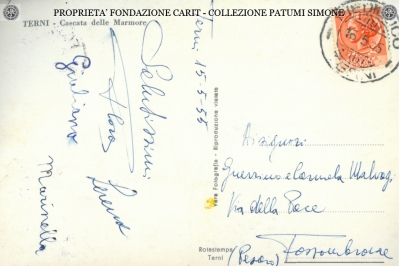 PROPRIETA' FONDAZIONE CARIT - COLLEZIONE PATUMI SIMONE
TERNI - Cascata delle Marmore
Terni 15-5-55
Salutissimi
Flora
Lorena
Giuliana
Marinella
Vera Fotografia - Riproduzione vietata
Rotostampa
Terni
Ai signori
Guerrino e Carmela Malvagi
Via della Pace
(Pesaro) Fossombrone